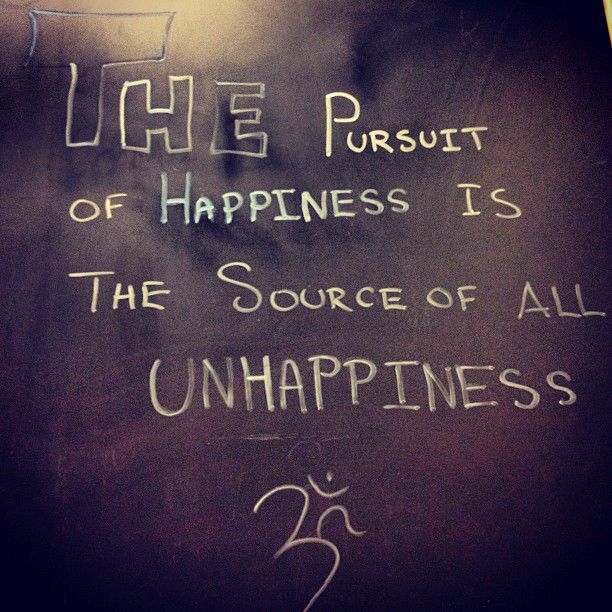 THE PURSUIT
OF HAPPINESS IS
THE SOURCE OF ALL
UNHAPPINESS
ॐ